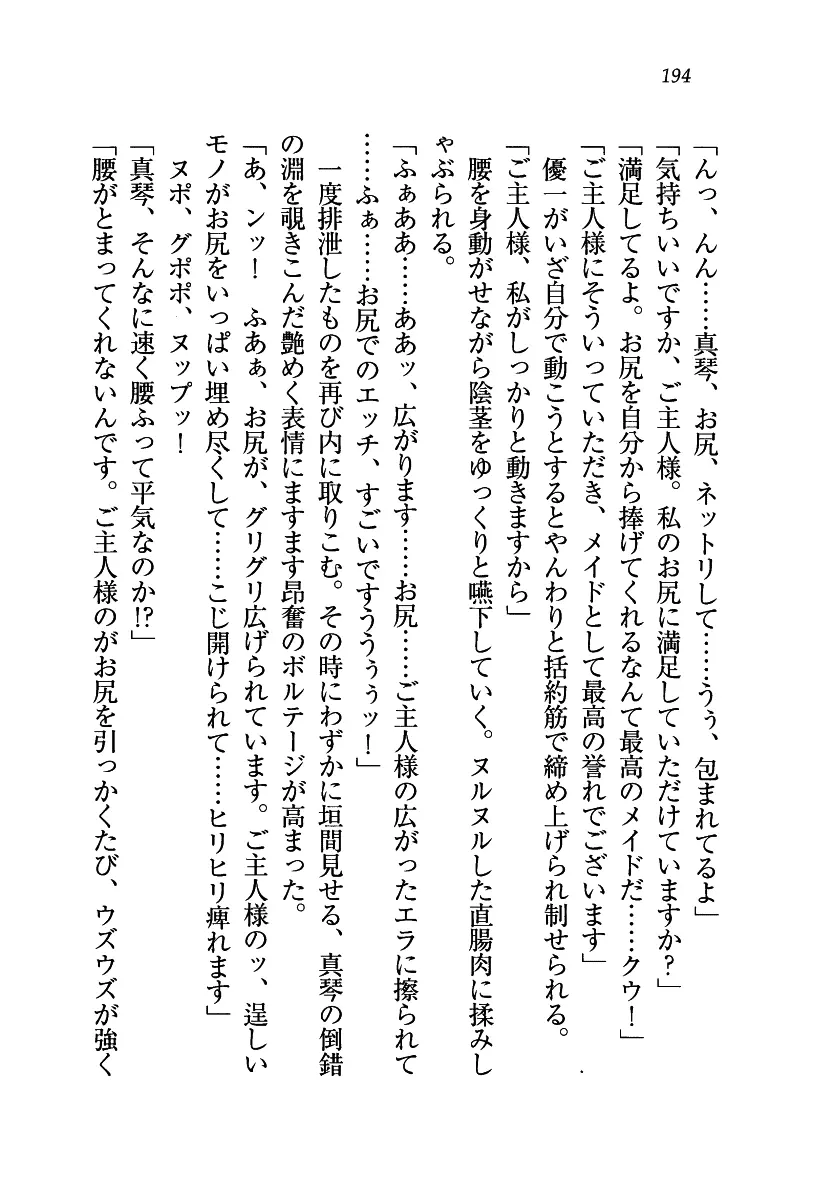 194
「んっ、んん……真琴、お尻、ネットリして……うぅ、包まれてるよ」
「気持ちいいですか、ご主人様。私のお尻に満足していただけていますか？」
「満足してるよ。お尻を自分から捧げてくれるなんて最高のメイドだ……クウ！」
「ご主人様にそういっていただき、メイドとして最高の誉れでございます」
優一がいざ自分で動こうとするとやんわりと括約筋で締め上げられ制せられる。
「ご主人様、私がしっかりと動きますから」
腰を身動がせながら陰茎をゆっくりと嚥下していく。ヌルヌルした直腸肉に揉みし
ゃぶられる。
「ふぁああ……ああッ、広がります……お尻……ご主人様の広がったエラに擦られて
……ふぁ……お尻でのエッチ、すごいですうぅぅッ！」
一度排泄したものを再び内に取りこむ。その時にわずかに垣間見せる、真琴の倒錯
の淵を覗きこんだ艶めく表情にますます昂奮のボルテージが高まった。
「あ、ンッ！　ふあぁ、お尻が、グリグリ広げられています。ご主人様のッ、逞しい
モノがお尻をいっぱい埋め尽くして……こじ開けられて……ヒリヒリ痺れます」
ヌポ、グポポ、ヌップッ！
「真琴、そんなに速く腰ふって平気なのか!?」
「腰がとまってくれないんです。ご主人様のがお尻を引っかくたび、ウズウズが強く